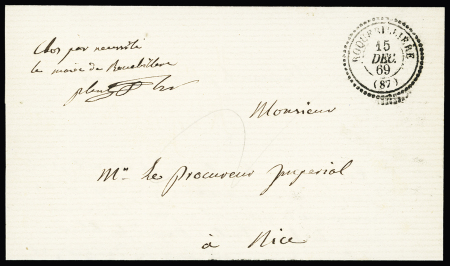 Clos par nécessité
le maire de Roquebillière
ROQUEBILLIÈRE
15
DEC.
69
(87)
Monsieur
Mr. le procureur Impérial
à Nice